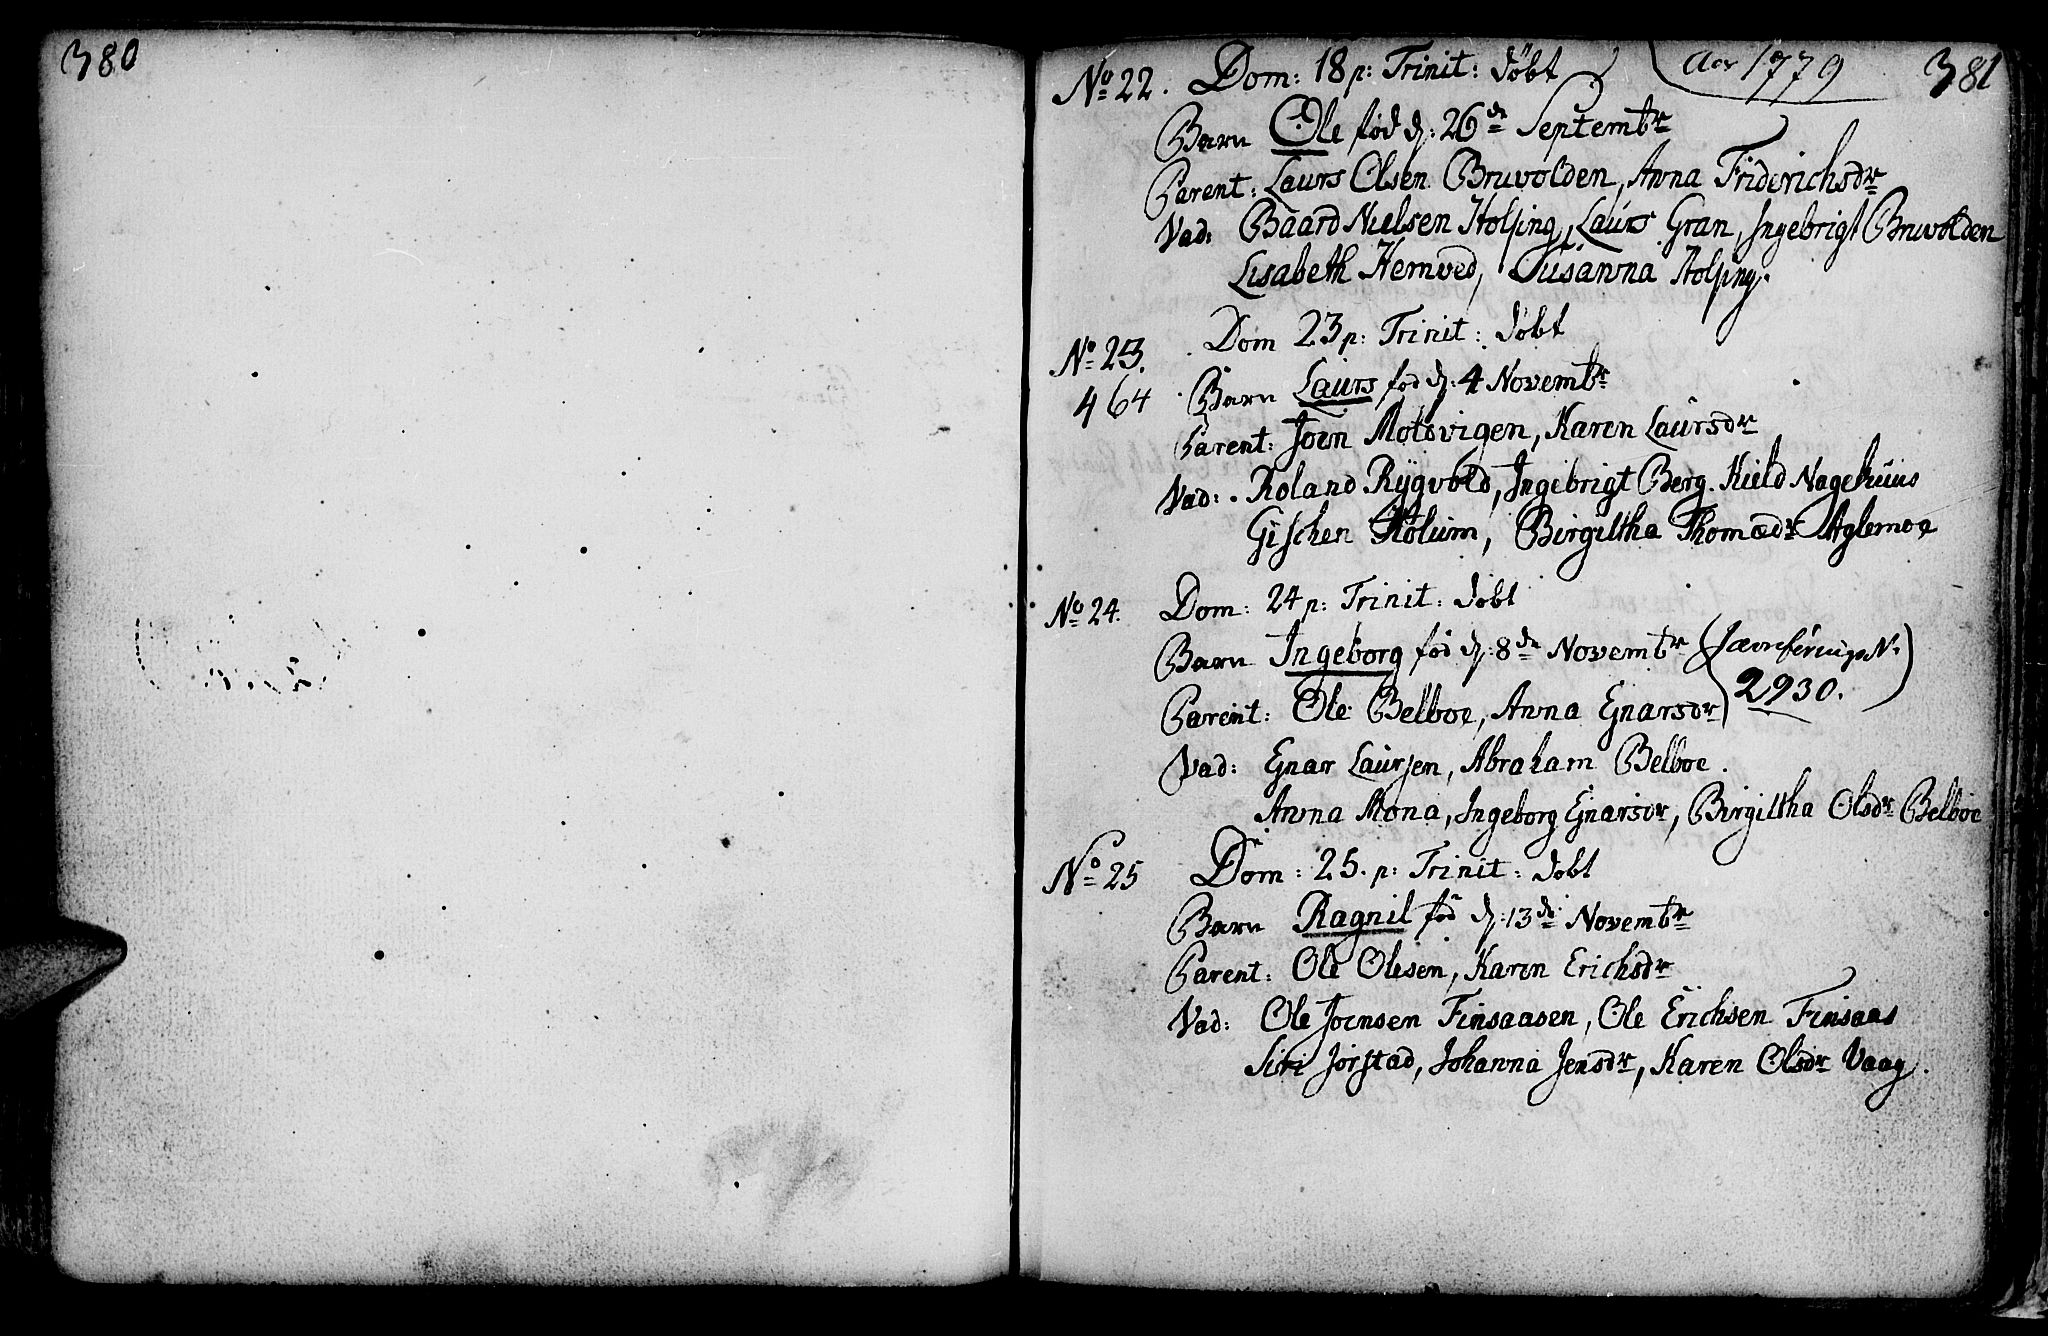 380
Aar 1779 381
No 22. Dom: 18 p: Trinit: døbt
Barn Ole fød d: 26de Septembr
Parent: Laurs Olsen Bruvolden, Anna Friderichsdr
Vad: Baard Nielsen Holsing, Laurs Gran, Ingebrigt Bruvolden
Lisabeth Hemved, Susanna Holsing.
No 23. Dom 23 p: Trinit: døbt
464 Barn Laurs fød d: 4 Novembr
Parent: Joen Motsvigen, Karen Laursdr
Vad: Roland Rygvold, Ingebrigt Berg. Kield Nagelhuus
Gischen Holum, Birgiltha Thomædr Aglemoe
No 24. Dom: 24 p: Trinit: døbt
Barn Ingeborg fød d: 8de Novembr (Jævnføring N.
Parent: Ole Belboe, Anna Ejnarsdr 2930.)
Vad: Ejnar Laursen, Abraham Belboe.
Anna Mona, Ingeborg Ejnarsdr, Birgiltha Olsdr Belboe
No 25 Dom: 25. p: Trinit: døbt
Barn Ragnil fød d: 13de Novembr
Parent: Ole Olesen, Karen Erichsdr
Vad: Ole Joensen Finsaasen, Ole Erichsen Finsaas
Siri Jørstad, Johanna Jensdr, Karen Olsdr Vaag.